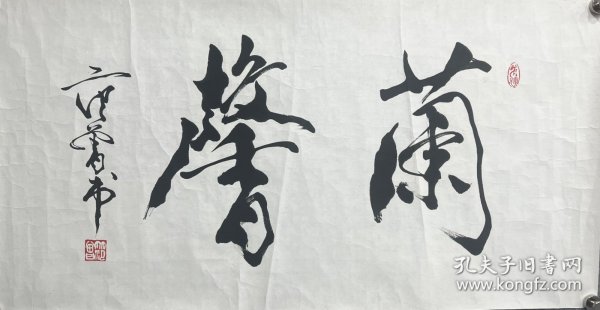 蘭馨
范曾书
孔夫子旧书网
www.kongfz.com